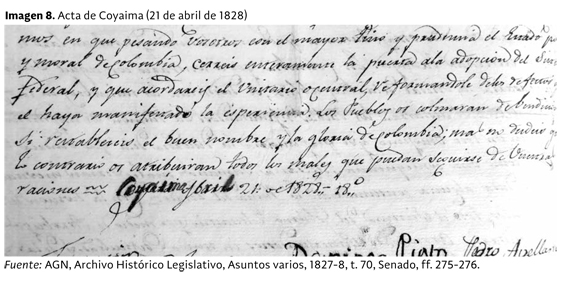 Imagen 8. Acta de Coyaima (21 de abril de 1828)
mos en que pesando vosotros con el mayor tino y prudencia el Estado po
y moral de Colombia, cerreis enteramente la puerta ala adopcion del
Federal, y que acordareis el Unitario o central, reformandole delos defectos
el haya manifestado la esperiencia. Los Pueblos os colmaran de
Si restableceis el buen nombre y la gloria de Colombia; mas no dudeis
lo contrario os atribuiran todos los males que puedan seguirse de
raciones Coyaima Abril 21 de 1828,, 18.º
Pedro
Fuente: AGN, Archivo Histórico Legislativo, Asuntos varios, 1827-8, t. 70, Senado, ff. 275-276.